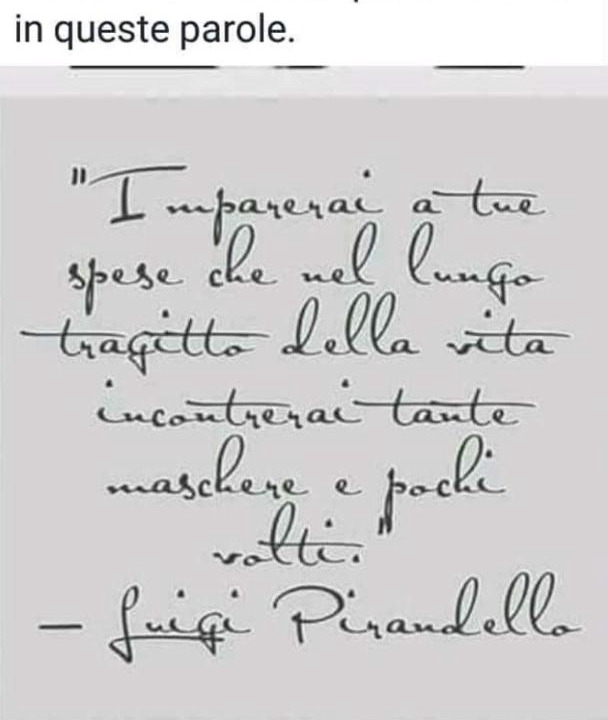 in queste parole.
"Imparerai a tue
spese che nel lungo
tragitto della vita
incontrerai tante
maschere e pochi
volti."
- Luigi Pirandello